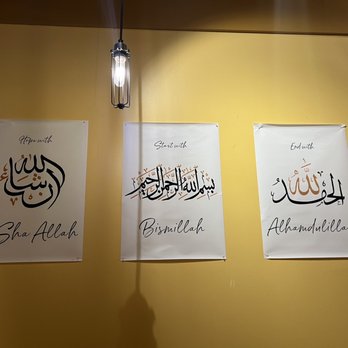 Hope with
إن شاء الله
Sha Allah
Start with
بسم الله الرحمن الرحيم
Bismillah
End with
الحمد لله
Alhamdulilla